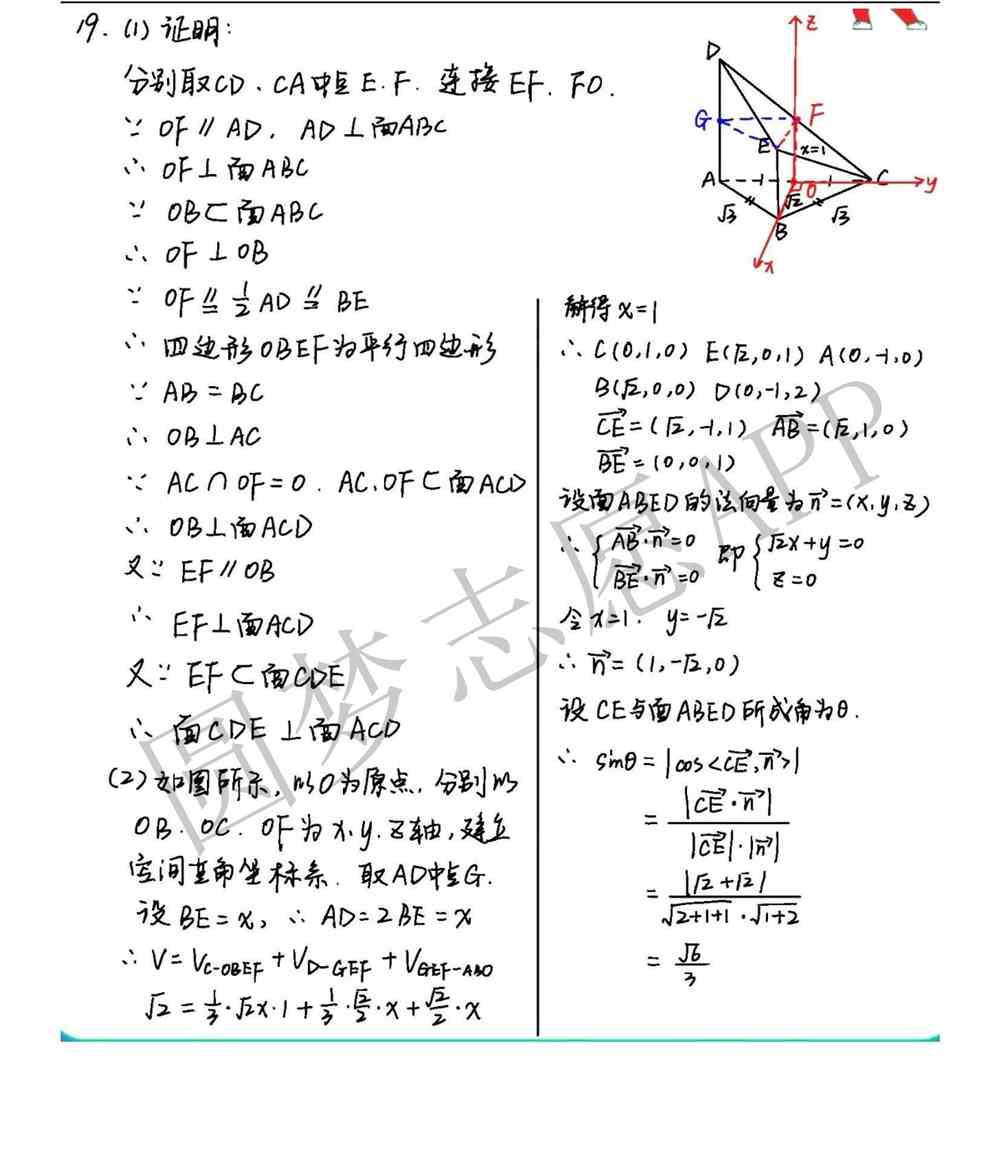 19. (1) 证明:
分别取CD、CA中点E.F. 连接EF、FO.
∵ OF∥AD, AD⊥面ABC
∴ OF⊥面ABC
∵ OB⊂面ABC
∴ OF⊥OB
∵ OF∥= 1/2 AD ∥= BE
∴ 四边形OBEF为平行四边形
∵ AB=BC
∴ OB⊥AC
∵ AC∩OF=O. AC、OF⊂面ACD
∴ OB⊥面ACD
又∵ EF∥OB
∴ EF⊥面ACD
又∵ EF⊂面CDE
∴ 面CDE⊥面ACD
(2) 如图所示, 以O为原点, 分别以
OB、OC、OF为x、y、z轴, 建立
空间直角坐标系. 取AD中点G.
设BE=x, ∴ AD=2BE=x
∴ V=V_{C-OBEF}+V_{D-GEF}+V_{GEF-ABO}
√2 = 1/3·√2x·1+1/3·√2/2·x+√2/2·x
D
z
G
F
E
x=1
A
1
1
O
C
y
√3
√2
√3
B
x
解得x=1
∴ C(0,1,0) E(√2,0,1) A(0,-1,0)
B(√2,0,0) D(0,-1,2)
CE→=(√2,-1,1) AB→=(√2,1,0)
BE→=(0,0,1)
设面ABED的法向量为n→=(x,y,z)
∴ { AB→·n→=0 即 { √2x+y=0
BE→·n→=0 z=0
令x=1. y=-√2
∴ n→=(1,-√2,0)
设CE与面ABED所成角为θ.
∴ sinθ=|cos<CE→,n→>|
= |CE→·n→| / |CE→|·|n→|
= |√2+√2| / √(2+1+1)·√(1+2)
= √6/3
圆梦志愿APP